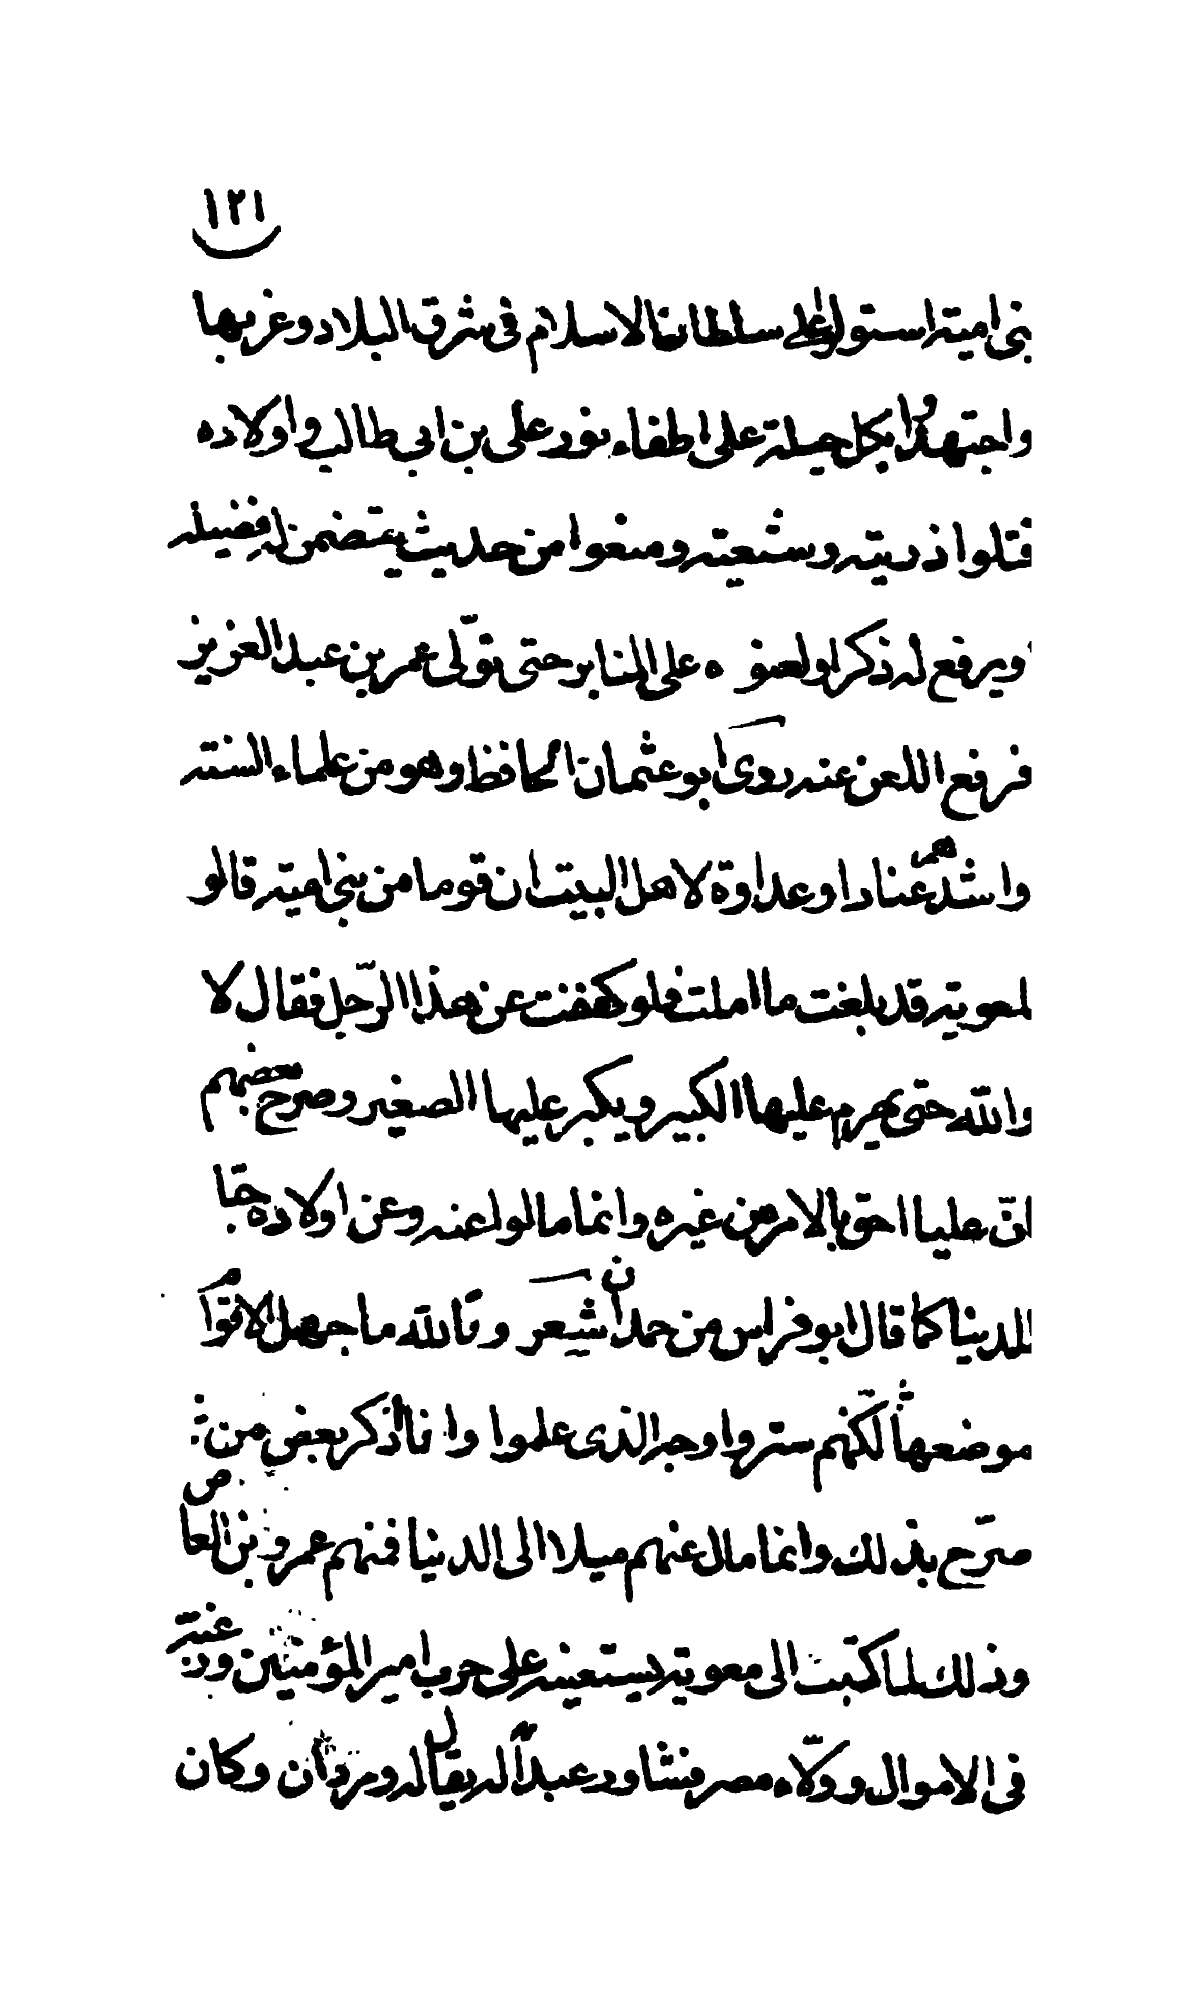 ١٢١
بنى امية استولوا على سلطان الاسلام فى شرق البلاد وغربها
واجتهدوا بكل حيلة على اطفاء نور على بن ابى طالب واولاده
قتلوا ذريته وشيعته ومنعوا من حديث يتضمن له فضيلة
او يرفع له ذكرا ولعنوه على المنابر حتى تولّى عمر بن عبد العزيز
فرفع اللعن عنه روى ابو عثمان الحافظ وهو من علماء السنة
واشدّهم عنادا وعداوة لاهل البيت ان قوما من بنى امية قالو
لمعوية قد بلغت ما املت فلو كففت عن هذا الرّجل فقال لا
والله حتى يهرم عليها الكبير ويكبر عليها الصغير وصرح بعضهم
انّ عليا احق بالامر من غيره وانما مالوا عنه وعن اولاده حبّا
للدينا كما قال ابو فراس من حمدان شعر وتالله ما جهل الاقوام
موضعها لكنّهم ستروا وجه الذى علموا وانا اذكر بعض من
صرّح بذلك وانما مال عنهم ميلا الى الدينا فمنهم عمرو بن العاص
وذلك لما كتبت الى معوية يستعينه على حرب امير المؤمنين ورغبه
فى الاموال وولّاه مصر فشاور عبداً له يقال له وردان وكان